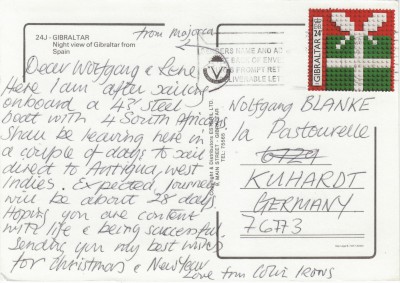 24J - GIBRALTAR
Night view of Gibraltar from
Spain
from Majorca
Dear Wolfgang & Lene
Here I am after sailing
onboard a 48' steel
boat with 4 South Africans
Shall be leaving here in
a couple of days to sail
direct to Antigua, West
Indies. Expected journey
will be about 28 days.
Hoping you are content
with life & being successful.
Sending you my best wishes
for Christmas & New Year
Love from Colin Irons
GIBRALTAR
24p
Wolfgang BLANKE
la Pastourelle
6729
KUHARDT
GERMANY
76773